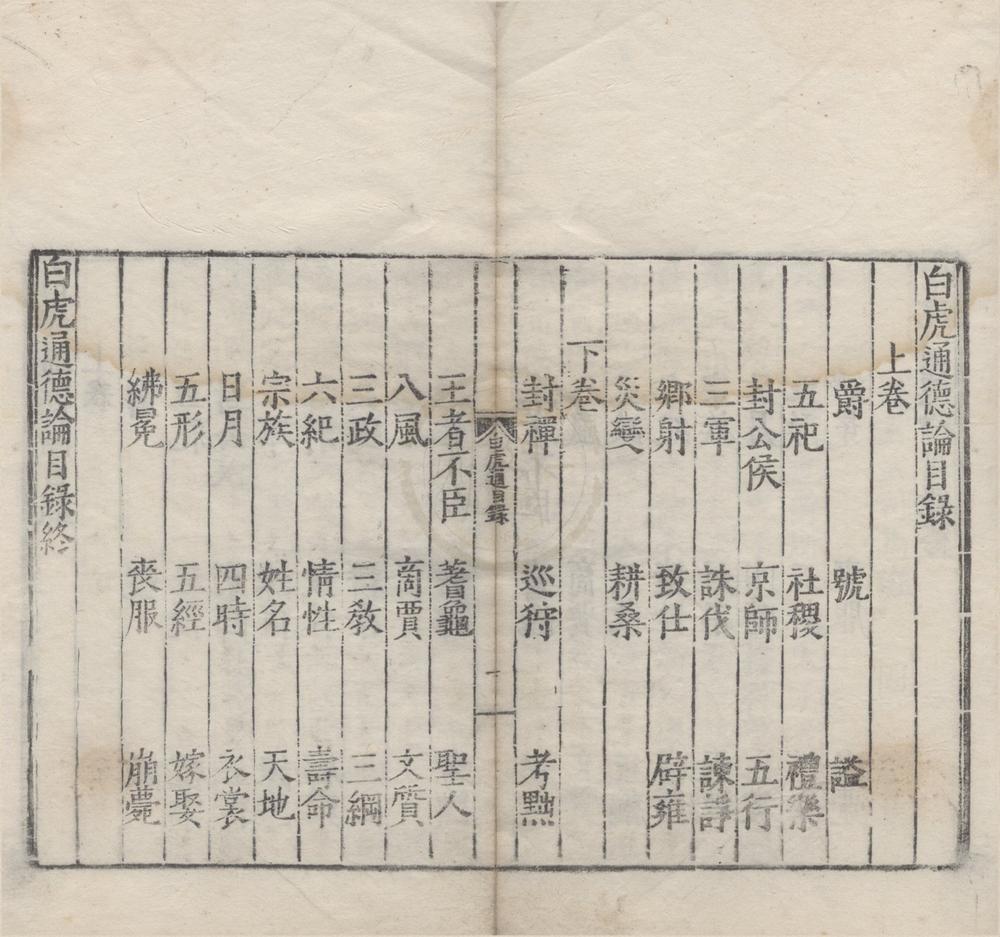 白虎通德論目錄
上卷
爵 號 謚
五祀 社稷 禮樂
封公侯 京師 五行
三軍 誅伐 諫諍
鄉射 致仕 辟雍
災變 耕桑
下卷
封禪 巡狩 考黜
白虎通目錄 一
王者不臣 蓍龜 聖人
八風 商賈 文質
三政 三教 三綱
六紀 情性 壽命
宗族 姓名 天地
日月 四時 衣裳
五形 五經 嫁娶
紼冕 喪服 崩薨
白虎通德論目錄終